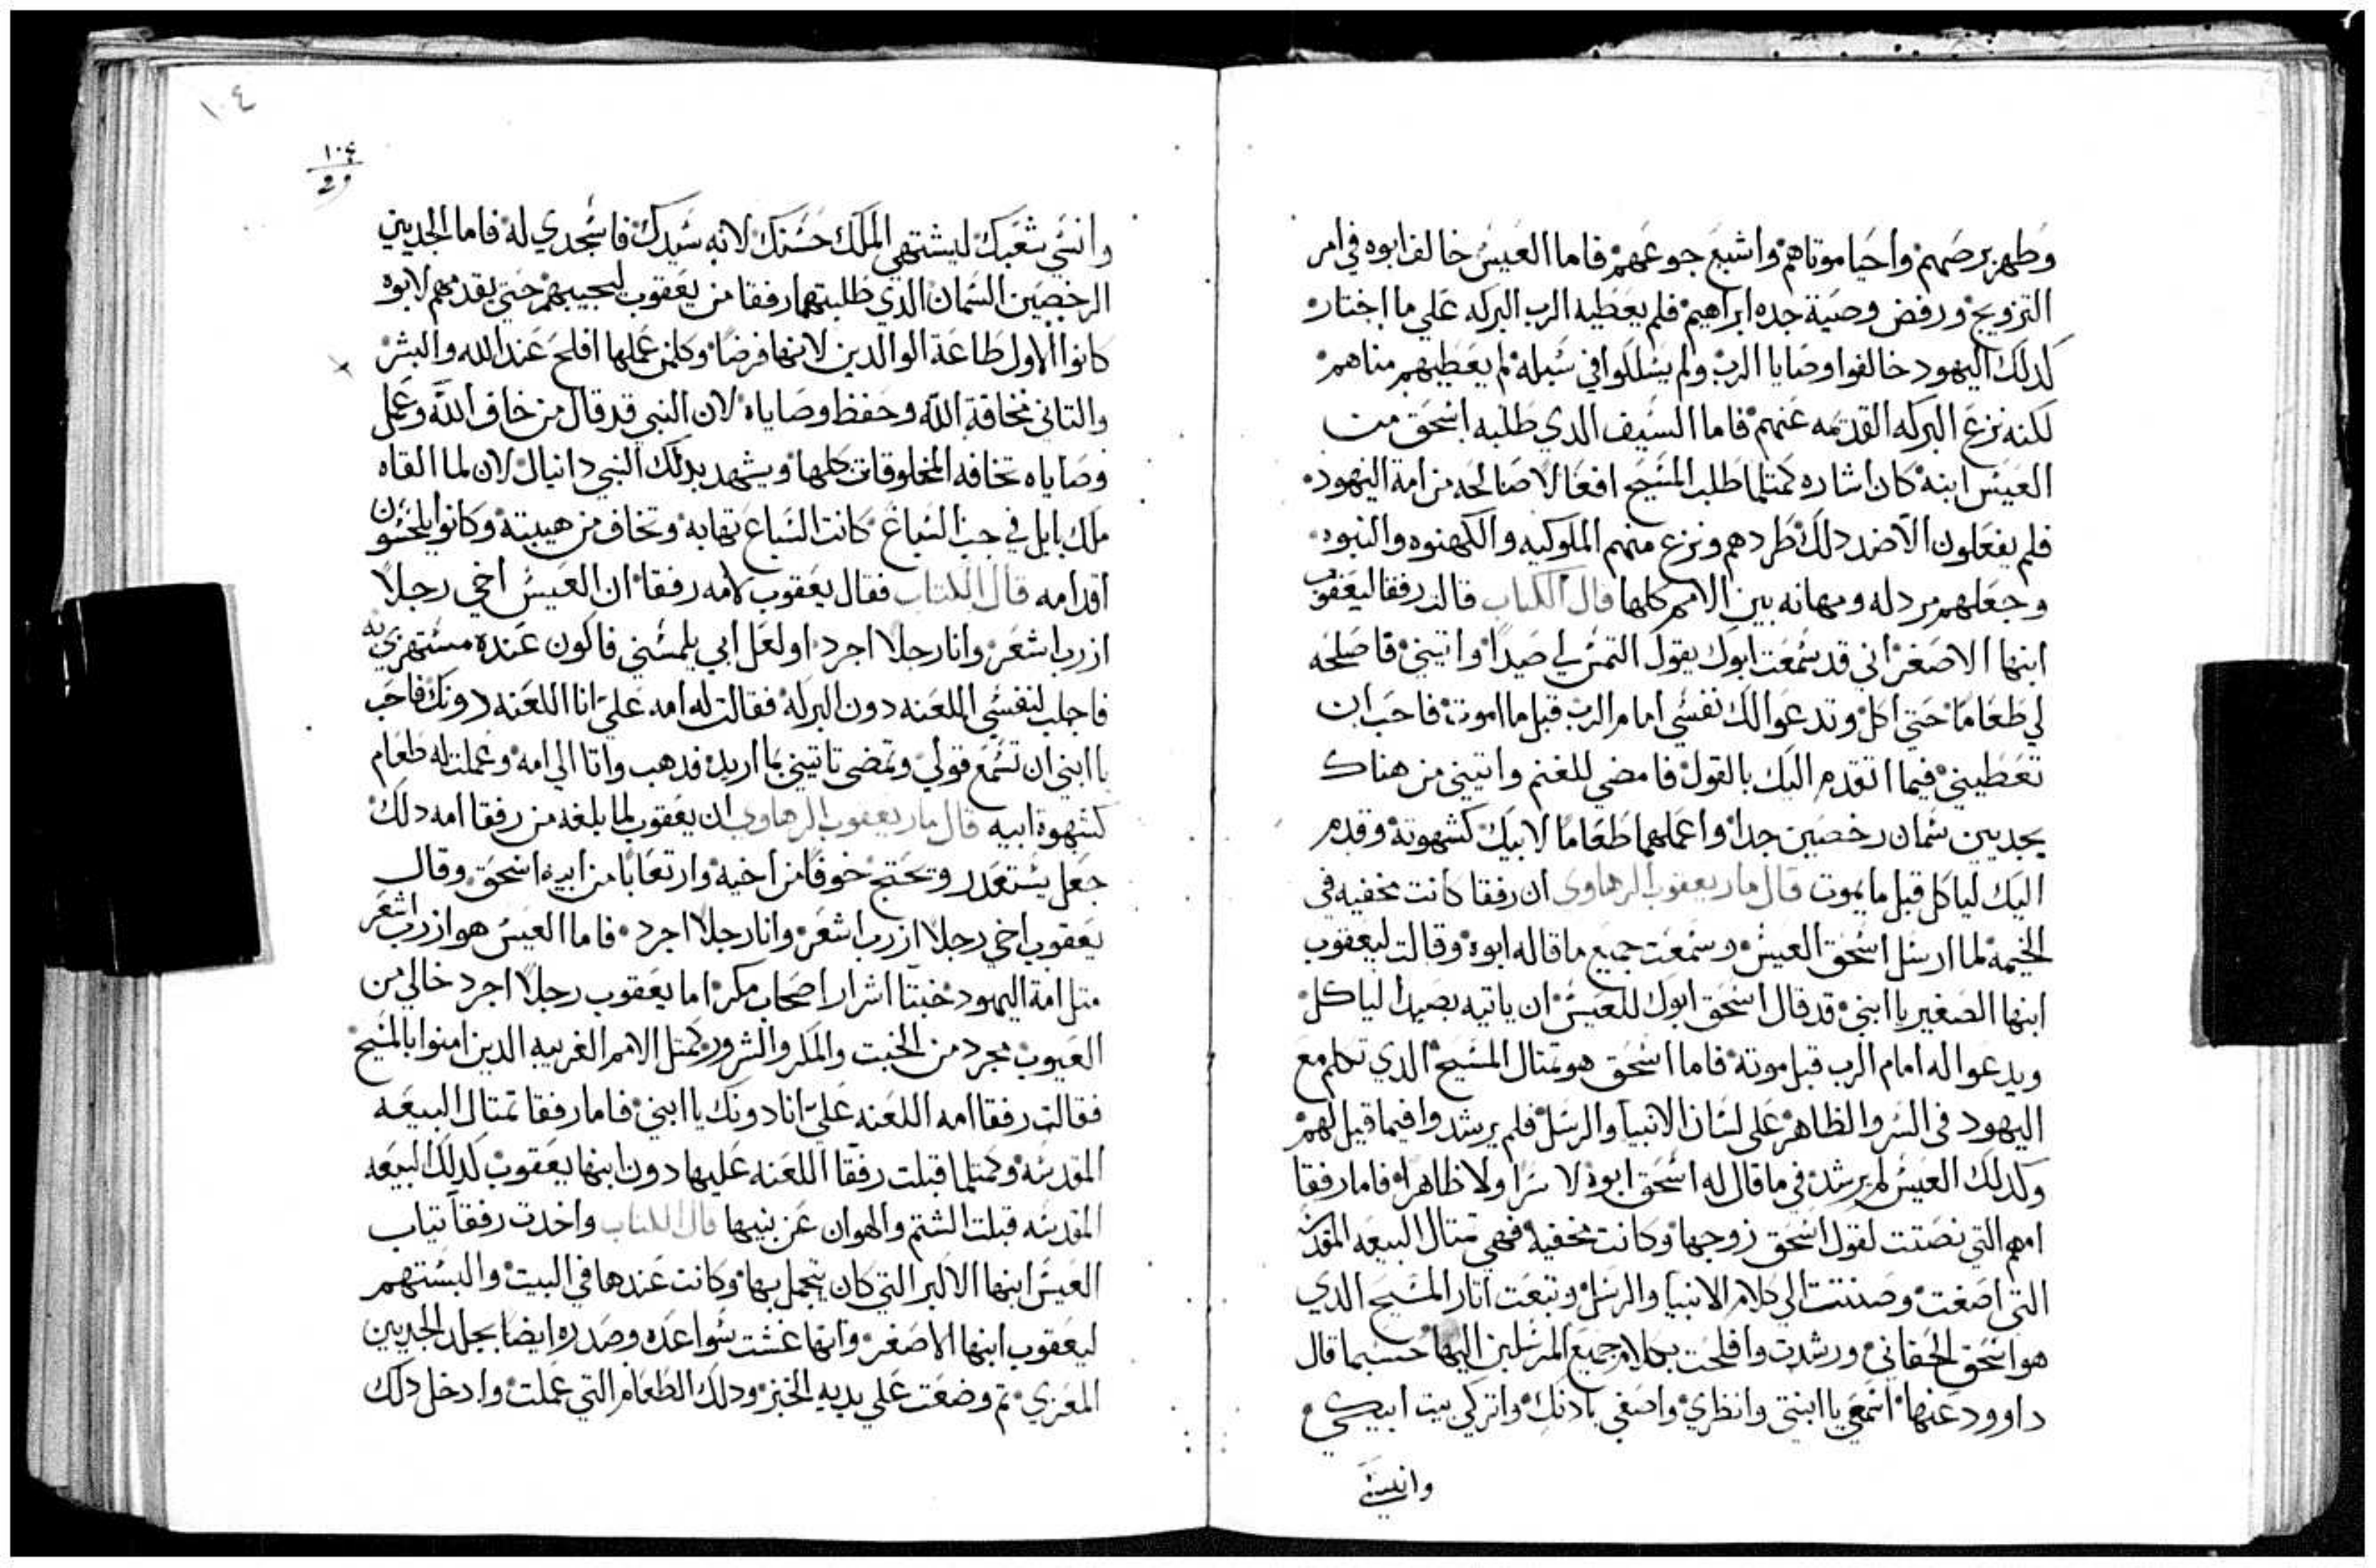 وطهر برصهم واحيا موتاهم واشبع جوعهم فاما العيس خالف ابوه في امر
التزويج ورفض وصية جده ابراهيم فلم يعطيه الرب البركه علي ما اختار
كدلك اليهود خالفوا وصايا الرب ولم يسلكوا في سبله لم يعطيهم مناهم
لكنه نزع البركه القديمه عنهم فاما السيف الدي طلبه اسحق من
العيس ابنه كان اشاره كمتلما طلب المسيح افعالا صالحه من امة اليهود
فلم يفعلون الا ضد دلك طردهم ونزع منهم الملوكيه والكهنوه والنبوه
وجعلهم مردله ومهانه بين الامم كلها قال الكتاب قالت رفقا ليعقوب
ابنها الاصغر اني قد سمعت ابوك يقول التمس لي صيدا واتيني فاصلحه
لي طعاما حتي اكل وتدعوا لك نفسي امام الرب قبل ما اموت فاحب ان
تعطيني فيما اتقدم اليك بالقول فامضي للغنم واتيني من هناك
بجديين سمان رخصين جدا واعملهما طعاما لابيك كشهوته وقدم
اليك لياكل قبل ما يموت قال مار يعقوب الرهاوي ان رفقا كانت مخفيه في
الخيمه لما ارسل اسحق العيس وسمعت جميع ما قاله ابوه وقالت ليعقوب
ابنها الصغير يا ابني قد قال اسحق ابوك للعيس ان ياتيه بصيدا لياكل
ويدعوا له امام الرب قبل موته فاما اسحق هو تمتال المسيح الدي تكلم مع
اليهود في السر والظاهر علي لسان الانبيا والرسل فلم يرشدوا فيما قيل لهم
وكدلك العيس لم يرشد في ما قال له اسحق ابوه لا سرا ولا ظاهرا فاما رفقا
امهم التي نصتت لقول اسحق زوجها وكانت مخفيه فهي تمتال البيعه المقدسه
التي اصغت وصنتت الي كلام الانبيا والرسل وتبعت اتار المسيح الدي
هو اسحق الحقاني ورشدت وافلحت بكلام جميع المرسلين اليها حسبما قال
داوود عنها اسمعي يا ابنتي وانظري واصغي بادنك واتركي بيت ابيكي
وانسي
١٠٤
١٠٤
وانسي شعبك ليشتهي الملك حسنك لانه سيدك فاسجدي له فاما الجديين
الرخصين السمان الدي طلبتهما رفقا من يعقوب ليجيبهم حتي يقدمهم لابوه
كانوا الاول طاعة الوالدين لانها فرضا وكلمن عملها افلح عند الله والبشر
والتاني مخافة الله وحفظ وصاياه لان النبي قد قال من خاف الله وعمل
وصاياه تخافه المخلوقات كلها ويشهد بدلك النبي دانيال لان لما القاه
ملك بابل في جب السباع كانت السباع تهابه وتخاف من هيبته وكانوا يلحسون
اقدامه قال الكتاب فقال يعقوب لامه رفقا ان العيس اخي رجلا
ازرب اشعر وانا رجلا اجرد او لعل ابي يلمسني فاكون عنده مستهزي به
فاجلب لنفسي اللعنه دون البركه فقالت له امه علي انا اللعنه دونك فاحب
يا ابني ان تسمع قولي وتمضي تاتيني بما اريد فدهب واتا الي امه وعملت له طعام
كشهوة ابيه قال مار يعقوب الرهاوي ان يعقوب لما بلغه من رفقا امه دلك
جعل يستعدر وتحتج خوفا من اخيه وارتعابا من ابيه اسحق وقال
يعقوب اخي رجلا ازرب اشعر وانا رجلا اجرد فاما العيس هو ازرب اشعر
متل امة اليهود خبتا اشرار اصحاب مكر اما يعقوب رجلا اجرد خالي من
العيوب مجرد من الخبت والمكر والشرور كمتل الامم الغريبه الدين امنوا بالمسيح
فقالت رفقا امه اللعنه علي انا دونك يا ابني فاما رفقا تمتال البيعه
المقدسه وكمتلما قبلت رفقا اللعنه عليها دون ابنها يعقوب كدلك البيعه
المقدسه قبلت الشتم والهوان عن بنيها قال الكتاب واخدت رفقا تياب
العيس ابنها الاكبر التي كان يتجمل بها وكانت عندها في البيت والبستهم
ليعقوب ابنها الاصغر وانها غشت سواعده وصدره ايضا بجلد الجديين
المعزي تم وضعت علي يديه الخبز ودلك الطعام التي عملت وادخل دلك